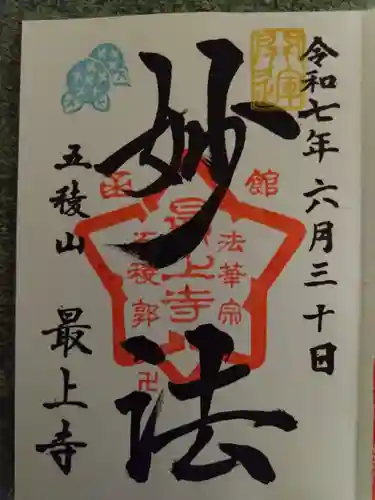 令和七年六月三十日
妙法
五稜山
最上寺
函館
法華宗
最上寺
五稜郭
卍